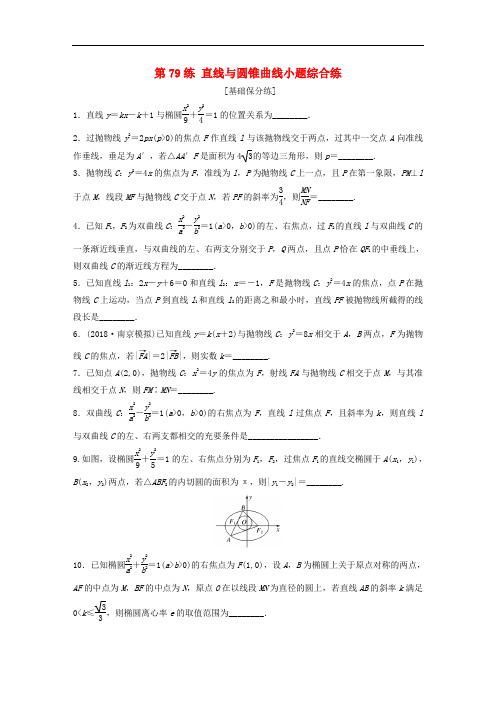 第79练 直线与圆锥曲线小题综合练
[基础保分练]
1．直线y＝kx－k＋1与椭圆x²/9＋y²/4＝1的位置关系为________．
2．过抛物线y²＝2px(p>0)的焦点F作直线l与该抛物线交于两点，过其中一交点A向准线
作垂线，垂足为A′，若△AA′F是面积为4√3的等边三角形，则p＝________.
3．抛物线C：y²＝4x的焦点为F，准线为l，P为抛物线C上一点，且P在第一象限，PM⊥l
于点M，线段MF与抛物线C交于点N，若PF的斜率为3/4，则MN/NF＝________.
4．已知F₁，F₂为双曲线C：x²/a²－y²/b²＝1(a>0，b>0)的左、右焦点，过F₁的直线l与双曲线C的
一条渐近线垂直，与双曲线的左、右两支分别交于P，Q两点，且点P恰在QF₂的中垂线上，
则双曲线C的渐近线方程为________．
5．已知直线l₁：2x－y＋6＝0和直线l₂：x＝－1，F是抛物线C：y²＝4x的焦点，点P在抛
物线C上运动，当点P到直线l₁和直线l₂的距离之和最小时，直线PF被抛物线所截得的线
段长是________．
6．(2018·南京模拟)已知直线y＝k(x＋2)与抛物线C：y²＝8x相交于A，B两点，F为抛物
线C的焦点，若|FA→|＝2|FB→|，则实数k＝________.
7．已知点A(2,0)，抛物线C：x²＝4y的焦点为F，射线FA与抛物线C相交于点M，与其准
线相交于点N，则FM∶MN＝________.
8．双曲线C：x²/a²－y²/b²＝1(a>0，b>0)的右焦点为F，直线l过焦点F，且斜率为k，则直线l
与双曲线C的左、右两支都相交的充要条件是________________．
9.如图，设椭圆x²/9＋y²/5＝1的左、右焦点分别为F₁，F₂，过焦点F₁的直线交椭圆于A(x₁，y₁)，
B(x₂，y₂)两点，若△ABF₂的内切圆的面积为π，则|y₁－y₂|＝________.
y
B
F₁ O F₂ x
A
10．已知椭圆x²/a²＋y²/b²＝1(a>b>0)的右焦点为F(1,0)，设A，B为椭圆上关于原点对称的两点，
AF的中点为M，BF的中点为N，原点O在以线段MN为直径的圆上，若直线AB的斜率k满足
0<k≤√3/3，则椭圆离心率e的取值范围为________．